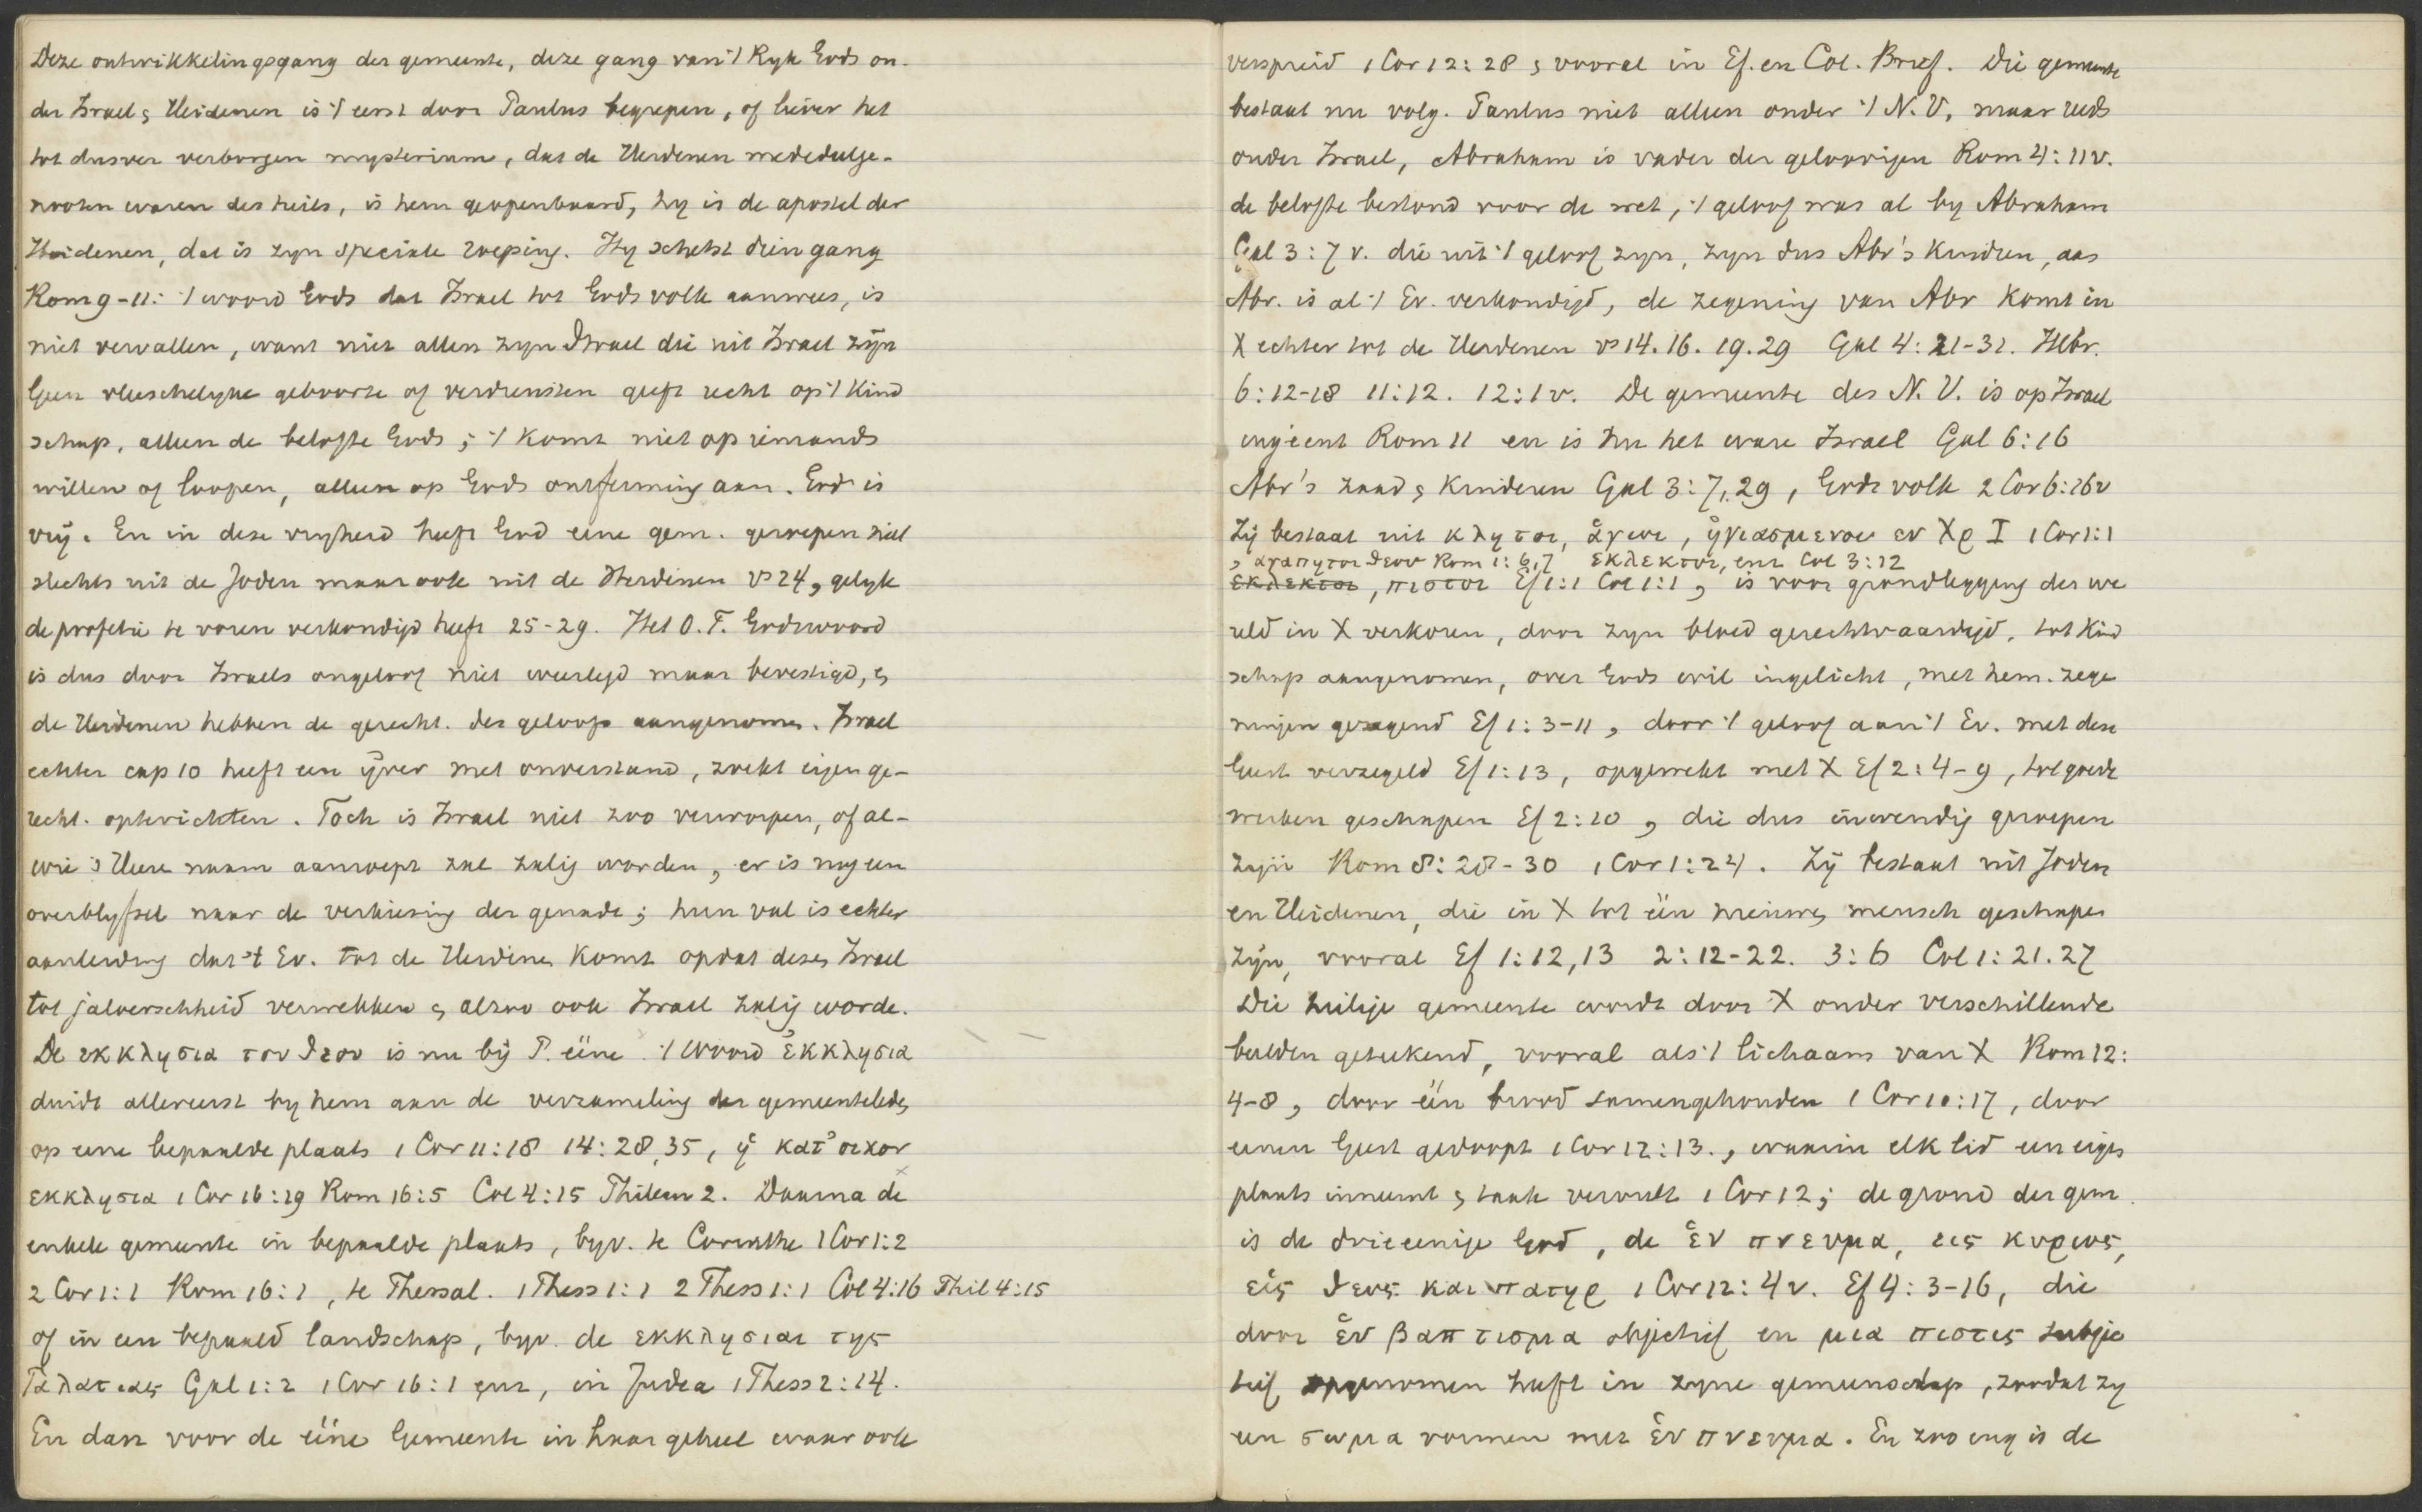 Deze ontwikkelingsgang der gemeente, deze gang van 't Ryk Gods on-
der Israel & Heidenen is 't eerst door Paulus begrepen, of liever het
tot dusver verborgen mysterium, dat de Heidenen mededeelge-
nooten waren des heils, is hem geopenbaard, hy is de apostel der
Heidenen, dat is zyn speciale roeping. Hy schetst dien gang
Rom 9-11: 't woord Gods dat Israel tot Gods volk aanwees, is
niet vervallen, want niet allen zyn Israel die uit Israel zÿn
Geen vleeschelyke geboorte of verdiensten geeft recht op 't Kind
schap, alleen de belofte Gods; 't komt niet op iemands
willen of loopen, alleen op Gods ontferming aan. God is
vrÿ. En in deze vryheid heeft God eene gem. geroepen niet
slechts uit de Joden maar ook uit de Heidenen vs 24, gelyk
de profetie te voren verkondigd heeft 25-29. Het O.T. Godswoord
is dus door Israels ongeloof niet weerlegd maar bevestigd, &
de Heidenen hebben de gerecht. des geloofs aangenomen. Israel
echter cap 10 heeft een ÿver met onverstand, zoekt eigen ge-
recht. opterichten. Toch is Israel niet zoo verworpen, of al-
wie 's Heere naam aanroept zal zalig worden, er is nog een
overblyfsel naar de verkiesing der genade; hun val is echter
aanleiding dat 't Ev. tot de Heidenen komt opdat deze Israel
tot jaloerschheid verwekken & alzoo ook Israel zalig worde.
De εκκλησια του θεου is nu bÿ P. ééne. 't Woord ἐκκλησια
duidt allereerst by hem aan de verzameling der gemeenteleden
op eene bepaalde plaats 1 Cor 11:18 14:28,35, ἡ κατ' οικον
εκκλησια 1 Cor 16:19 Rom 16:5 Col 4:15 Philem 2. Daarna de
enkele gemeente in bepaalde plaats, byv. te Corinthe 1 Cor 1:2
2 Cor 1:1 Rom 16:1, te Thessal. 1 Thess 1:1 2 Thess 1:1 Col 4:16 Phil 4:15
of in een bepaald landschap, byv. de εκκλησιαι της
Γαλατιας Gal 1:2 1 Cor 16:1 enz, in Judea 1 Thess 2:14.
En dan voor de ééne Gemeente in haar geheel waar ook
verspreid 1 Cor 12:28 & vooral in Ef. en Col. Brief. Die gemeente
bestaat nu volg. Paulus niet alleen onder 't N.V. maar reeds
onder Israel, Abraham is vader der geloovigen Rom 4:11v.
de belofte bestond voor de wet, 't geloof was al by Abraham
Gal 3:7 v. die uit 't geloof zyn, zyn dus Abr's kindren, aan
Abr. is al 't Ev. verkondigd, de zegening van Abr komt in
X echter tot de Heidenen vs 14. 16. 19. 29 Gal 4:21-31. Hebr.
6:12-18 11:12. 12:1v. De gemeente des N.V. is op Israel
ingeënt Rom 11 en is nu het ware Israel Gal 6:16
Abr's zaad & kinderen Gal 3:7,29, Gods volk 2 Cor 6:16v
Zÿ bestaat uit κλητοι, ἁγιοι, ἡγιασμενοι εν Χρ Ι 1 Cor 1:1
, αγαπητοι θεου Rom 1:6,7 εκλεκτοι, enz Col 3:12
εκλεκτοι, πιστοι Ef 1:1 Col 1:1, is voor grondlegging der we
reld in X verkoren, door zyn bloed gerechtvaardigd, tot Kind
schap aangenomen, over Gods wil ingelicht, met hem. zege
ningen gezegend Ef 1:3-11, door 't geloof aan 't Ev. met deze
Geest verzegeld Ef 1:13, opgewekt met X Ef 2:4-9, tot goede
werken geschapen Ef 2:10, die dus inwendig geroepen
zyn Rom 8:28-30 1 Cor 1:24. Zÿ bestaat uit Joden
en Heidenen, die in X tot één nieuwe mensch geschapen
zÿn, vooral Ef 1:12,13 2:12-22. 3:6 Col 1:21.27
Die heilige gemeente wordt door X onder verschillende
beelden geteekend, vooral als 't lichaam van X Rom 12:
4-8, door één brood samengehouden 1 Cor 10:17, door
eenen Geest gedoopt 1 Cor 12:13., waarin elk lid een eigen
plaats inneemt & taak vervult 1 Cor 12; de grond der gem.
is de drieeenige God, de ἑν πνευμα, εις κυριος,
εἱς θεος και πατηρ 1 Cor 12:4v. Ef 4:3-16, die
door ἑν βαπτισμα objectief en μια πιστις subjec
tief opgenomen heeft in zyne gemeenschap, zoodat zy
een σωμα vormen met ἑν πνευμα. En zoo eng is de